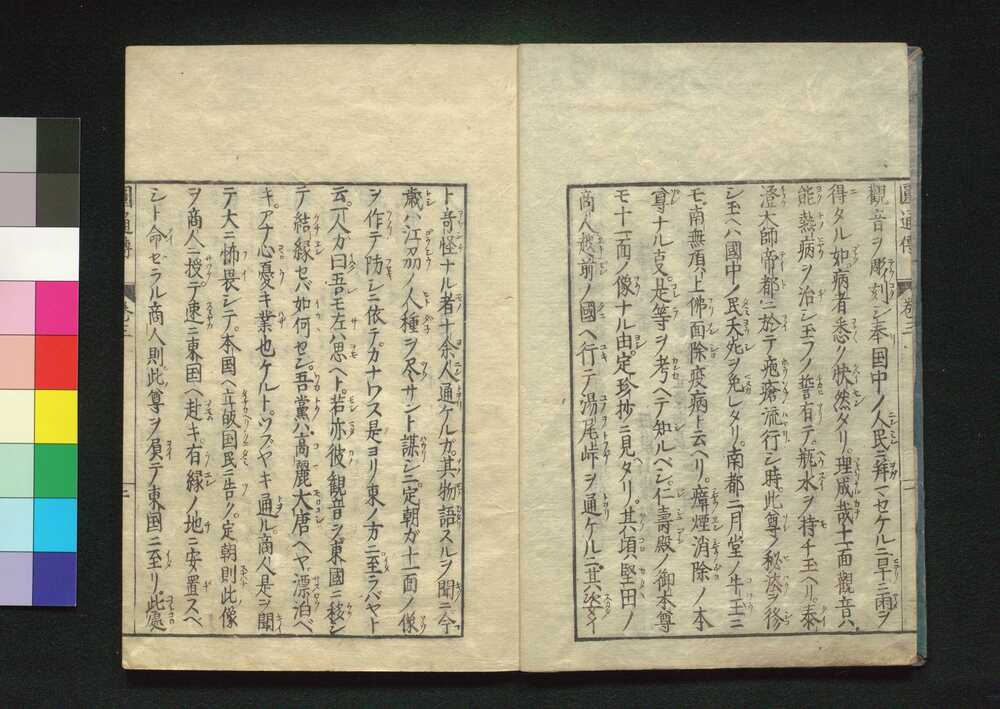 圓通傳 卷三 二
觀音ヲ彫刻シ奉国中ノ人民ニ拜マセケルニ旱ニ雨ヲ
得タル如病者悉ク快然タリ理成哉十一面觀音ハ
能熱病ヲ治シ玉フノ誓有テ瓶水ヲ持チ玉ヘリ泰
澄大師帝都ニ於テ疱瘡流行シ時此尊ノ秘法ヲ修
シ玉ヘハ國中ノ民夭死ヲ免レタリ南都二月堂ノ牛王ニ
モ南無頂上佛面除疫病ト云ヘリ瘴煙消除ノ本
尊ナル支是等ヲ考ヘテ知ルベシ仁壽殿ノ御本尊
モ十一面ノ像ナル由定珍抄ニ見タリ其頃堅田ノ
商人越前ノ國ヘ行テ湯尾峠ヲ通ケルニ其姿イ
ト奇怪ナル者十余人通ケルガ其物語スルヲ聞ニ今
歳ハ江刕ノ人種ヲ尽サント謀シニ定朝ガ十一面ノ像
ヲ作テ防シニ依テカナワス是ヨリ東ノ方ニ至ラバヤト
云一人ガ曰吾モ左ハ思ヘト若亦彼観音ヲ東國ニ移シ
テ結縁セバ如何セン吾黨ハ高麗大唐ヘヤ漂泊ベ
キアナ心憂キ業也ケルトツブヤキ通ル商人是ヲ聞
テ大ニ怖畏シテ本国ヘ立皈国民ニ告ク定朝則此像
ヲ商人ニ授テ速ニ東国ヘ赴キ有縁ノ地ニ安置スベ
シト命セラル商人則此尊ヲ負テ東国ニ至リ此處
圓通傳 卷三 三